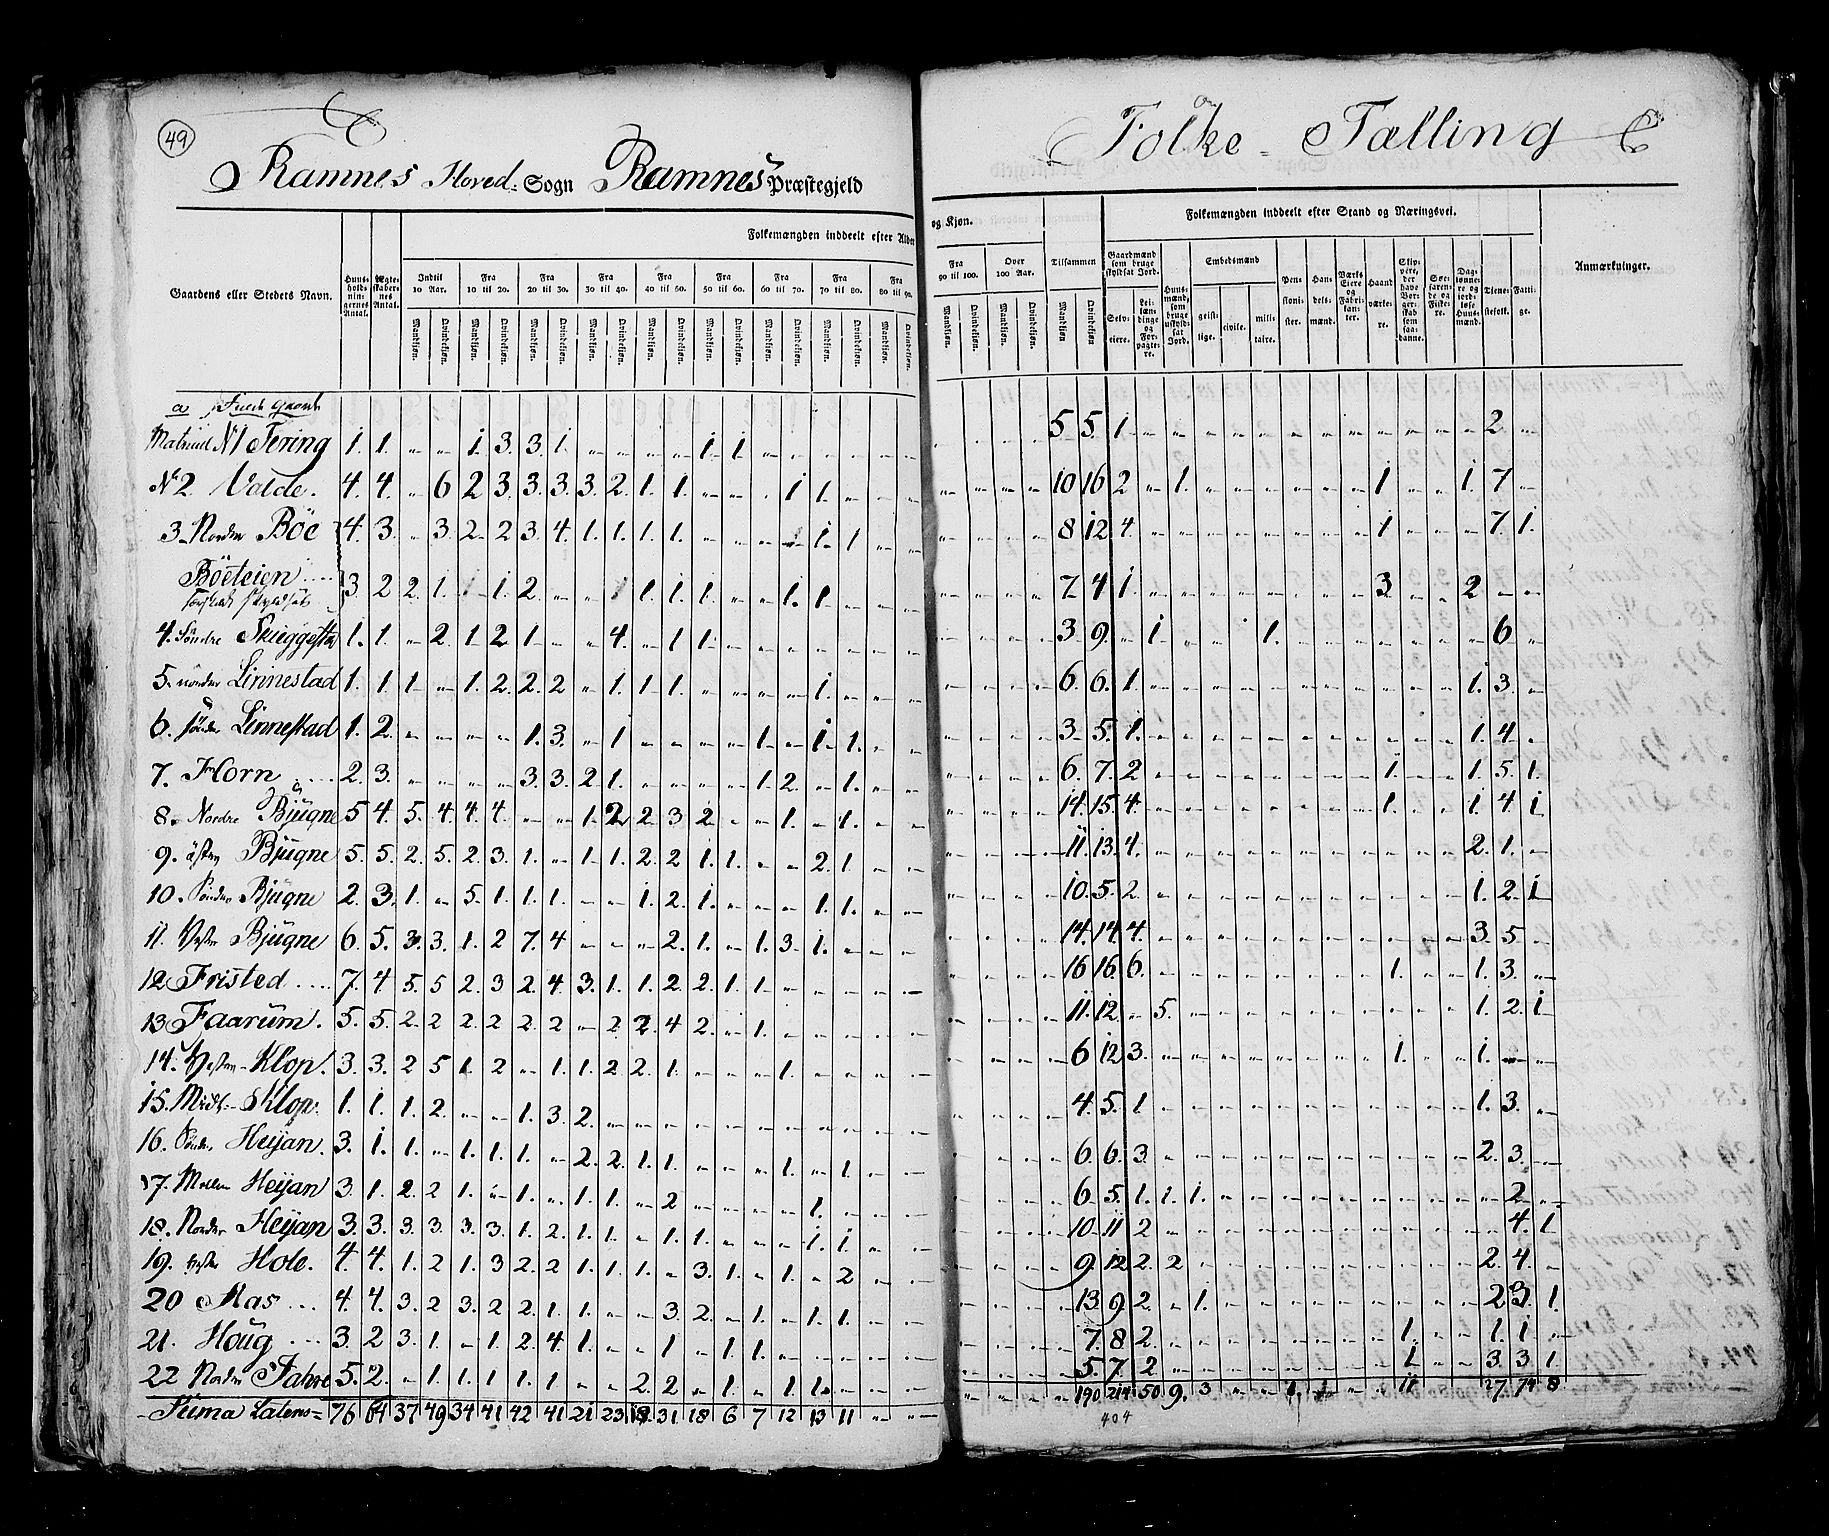 49
Ramnes Hoved-Sogn Ramnes Præstegjeld
Folke-Tælling
Gaardens eller Stedets Navn.
Huusholdningernes Antal.
Ægteskabernes Antal.
Folkemængden inddeelt efter Alder og Kjøn.
Indtil 10 Aar. Fra 10 til 20. Fra 20 til 30. Fra 30 til 40. Fra 40 til 50. Fra 50 til 60. Fra 60 til 70. Fra 70 til 80. Fra 80 til 90. Fra 90 til 100. Over 100 Aar.
Mandkjøn. Qvindekjøn.
Tilsammen
Mandkjøn. Qvindekjøn.
Folkemængden inddeelt efter Stand og Næringsvei.
Gaardmænd som bruge skyldsat Jord.
Selveiere. Leilændinge og Forpagtere.
Huusmænd, som bruge uskyldsat Jord.
Embedsmænd
geistlige. civile. militaire.
Pensionister.
Handelsmænd.
Værkseiere og Fabrikanter.
Haandværkere.
Skippere, der have Borgerskab som saadanne.
Søefarende og Fiskere.
Daglønnere og jordløse Huusmænd.
Tjenestefolk.
Fattige.
Anmærkninger.
Matricul N1 Tering 1. 1. " " 1. 3. 3. 1. " " " " 1. 1. " " " " 5 5. 1 2
N2 Valde. 4. 4. " 6 2 3. 3. 3. 3. 2. 1. 1. " " . 1 1. 10 16 2 " 1. 1 1. 7
3 Norder Böe 4. 3. " 3. 2 2 3. 4. 1. 1. 1. 1. 1. 1 8 12 4 1 7. 1.
Böeteien 3 2 2. 1. 1. 2. 1. 1. 1. 1. 1. 7 4 1. 3 2
4. Söndre Skieggestad 1. 1. " 2. 1. 2 1. " " 4. " 1 1. 3 9. " 1. 1. 6
5. norder Linnestad 1. 1. 1. " 1. 2. 2. 2 " 1. 1. 1. 1. 6. 6. 1. 1. 3.
6. sönder Linnestad 1. 2. 1. 3. " 1. 1. " 1. 1. 3. 5. 1. 1. 4.
7. Horn 2. 3. 3. 3. 2 1. 1. 2. " 1. 6. 7. 2 1. 1. 5. 1.
8. Nordre Bjugne 5 4. 5. 4. 4. 4. " " 1. 2 2. 3 2. " " 1. " 1. 14. 15. 4. 1. 1. 4 1
9. östen Bjugne 5. 5. 2. 5. 2. 3. 1. " 1. 1. 2. 2 1. 1. " " 2. 1. 11. 13. 4. 2. 1.
10. Sönder Bjugne 2. 3. 1. " 5. 1. 1. 1. " " 1. 2. 1. 1. 1. 10. 5. 2. 1. 2. 1
11. Vester Bjugne 6. 5. 3. 3. 1. 2 7. 4 " " " 2. 1. " 1. 3. 1. 14. 14. 4. 3. 5
12 Fristed 7. 4 5. 5 2. 3 2. 4. 3. 1. 1. 2 2. 1. 1. 16 16. 6. 1. 1. 3.
13 Faarum. 5. 5. 2. 2 2. 2 2. 2 " 2. 2. 4 2. " 1. 11. 12. " 5. 1. 2. 1
14. Vesten Klop. 3. 3. 2 5 1. 2 " 1. 1. 2 2. 1. 1. 6 12 3. 1. 1.
15. Midt- Klop. 1. 1. 1. 2. " " 1. 3 2. 4. 5. 1 1. 3.
16. Sönder Heijan. 3. 1. 1. " 1. 1. 1. " 2. 2. 1. 1. 1. 1. 6. 6. 3. 2. 3.
17. Mellem Heijan 3. 1. 2. 2 1. " 1. " 1. 1. " 2 1. 6. 5. 1. 1. 1. 2.
18. Norder Heijan 3. 3. 3. 3. 3. 3. 1. 2. 1. 1. " 1. 1. 1. 1. 10. 11. 2 4. 1.
19. Vester Hole. 4. 4. 1. 2 1. 3 2. 2 1. 1. 1. " 3. 1. " 1. " 2 9. 12 2. 2 2. 4.
20 Aas 4. 4. 3. 2 3. 2 2. 1. 1. " " 3 2. " 1. " 1. 1. 13. 9 2. " 1. 2 3. 1.
21. Haug 3. 2 3. 1. " 1. 2. 4. 1. " " 1 " 1. 1. 7. 8 2. 1. 1. 1
22 Norder Fahre 5. 2. " 1. 1. 1. 1. 1. " " 2. 2. " 1. " 1. 1. 5. 7. 2 1 3. 3 1.
Suma Latens 76 64 37 49 34 41 42 41 21 23 31 18 6 7 12 13 11 190 214 50 9. 3 1 1 11 27. 74 8
404